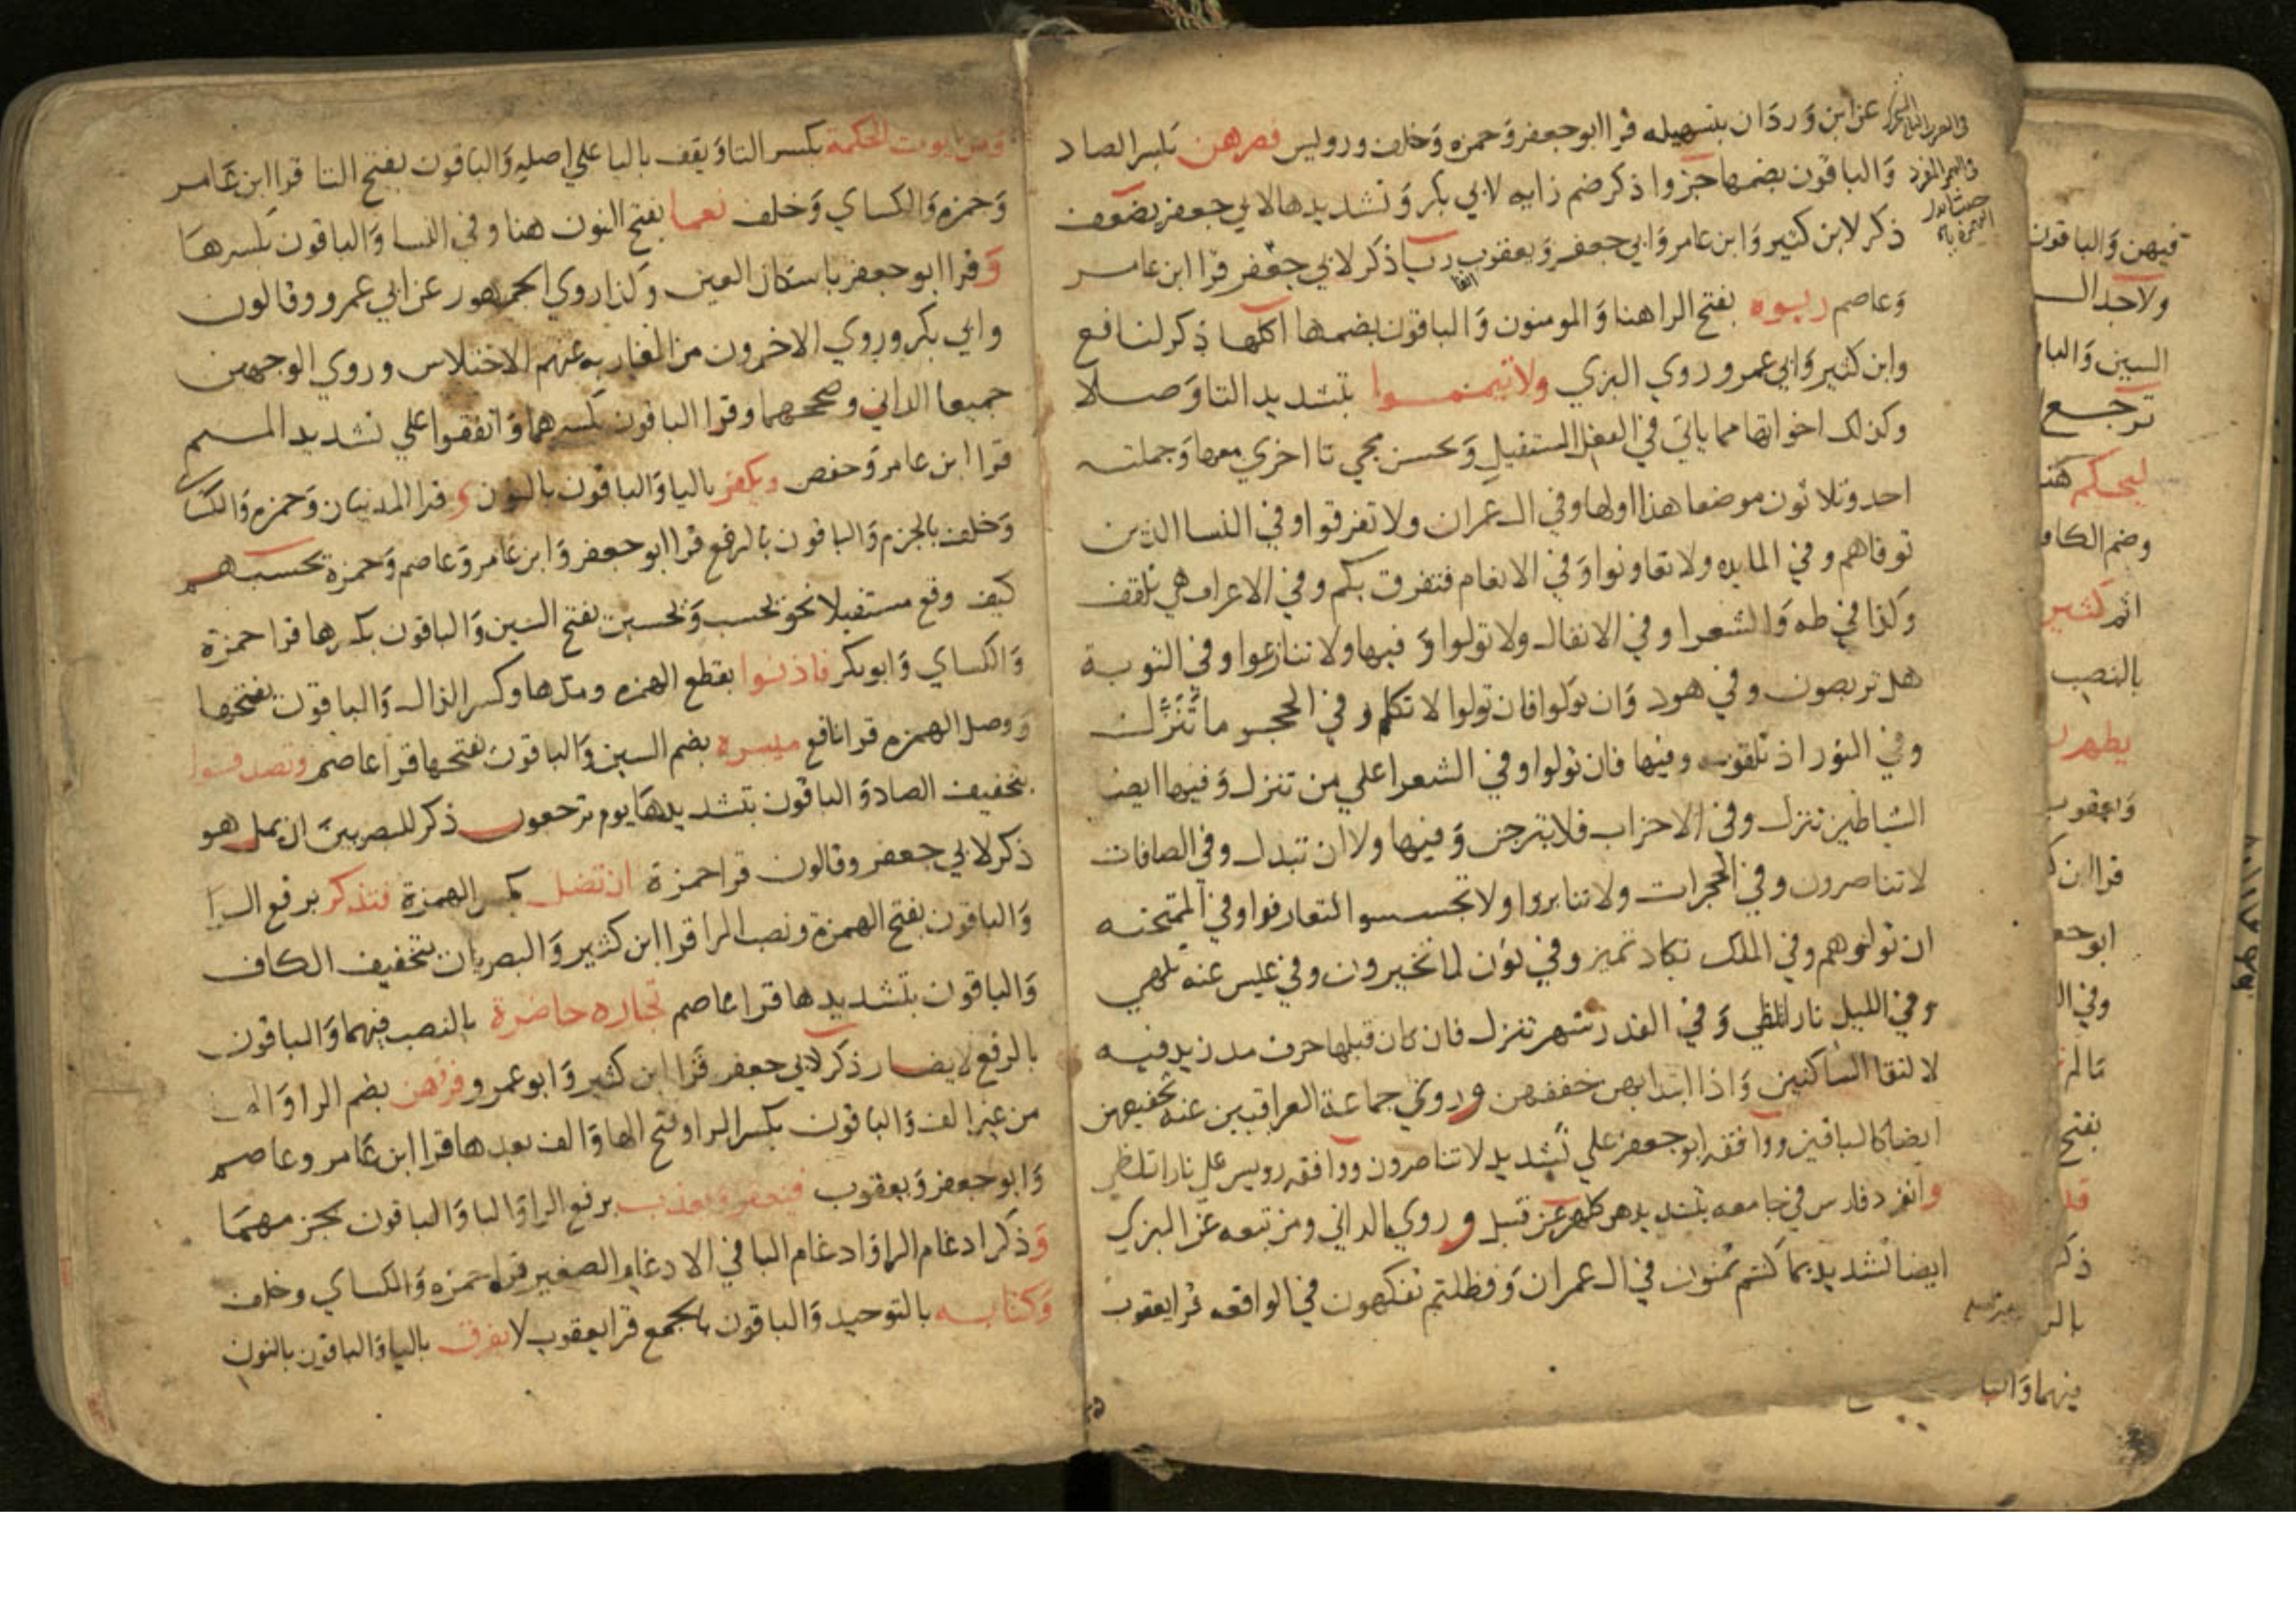 عن ابن وردان بتسهيله قرا ابو جعفر وحمزه وخلف ورويس فصرهن بكسر الصاد
والباقون بضمها جزوا ذكر ضم زايه لابي بكر وتشديدها لابي جعفر يضعف
ذكر لابن كثير وابن عامر وابي جعفر ويعقوب ذكر لابي جعفر قرا ابن عامر
وعاصم ربوه بفتح الرا هنا والمومنون والباقون بضمها اكلها ذكر لنافع
وابن كثير وابي عمرو روي البزي ولا تيمموا بتشديد التا وصلا
وكذلك اخواتها مما ياتي في الفعل المستقبل وحسن مجي تا اخري معها وجملته
احد وثلاثون موضعا هذا اولها وفي ال عمران ولا تفرقوا وفي النسا الذين
توفاهم وفي المايده ولا تعاونوا وفي الانعام فتفرق بكم وفي الاعراف هي تلقف
وكذا في طه والشعرا وفي الانفال ولا تولوا و فيها ولا تنازعوا وفي التوبة
هل تربصون وفي هود وان تولوا فان تولوا لا تكلم وفي الحجر ما تنزل
وفي النور اذ تلقونه وفيها فان تولوا وفي الشعرا علي من تنزل وفيها ايضا
الشياطين تنزل وفي الاحزاب فلا تبرجن وفيها ولا ان تبدل وفي الصافات
لا تناصرون وفي الحجرات ولا تنابزوا ولا تجسسوا لتعارفوا وفي الممتحنه
ان تولوهم وفي الملك تكاد تميز وفي نون لما تخيرون وفي عبس عنه تلهي
وفي الليل نارا تلظي وفي القدر شهر تنزل فان كان قبلها حرف مد زيد فيه
لالتقا الساكنين واذا ابتدا بهن خففهن وروي جماعة العراقيين عنه تخفيفهن
ايضا كالباقين ووافقه ابو جعفر علي تشديد لا تناصرون ووافقه رويس علي نارا تلظي
وانفرد فارس في جامعه بتشديدهن كلهن عن قنبل وروي الداني ومن تبعه عن البزي
ايضا تشديد بما كنتم تمنون في ال عمران وفظلتم تفكهون في الواقعه قرا يعقوب
ومن يوت الحكمة بكسر التا ويقف باليا علي اصليه والباقون بفتح التا قرا ابن عامر
وحمزه والكساي وخلف نعما بفتح النون هنا وفي النسا والباقون بكسرها
وقرا ابو جعفر باسكان العين وكذا روي الجمهور عن ابي عمرو وقالون
وابي بكر وروي الاخرون من المغاربه عنهم الاختلاس وروي الوجهين
جميعا الداني وصححهما وقرا الباقون بكسرهما واتفقوا علي تشديد الميم
قرا ابن عامر وحفص ويكفر باليا والباقون بالنون وقرا المدنيان وحمزه والكساي
وخلف بالجزم والباقون بالرفع قرا ابو جعفر وابن عامر وعاصم وحمزة تحسبهم
كيف وقع مستقبلا نحو يحسب ويحسبن بفتح السين والباقون بكسرها قرا حمزة
والكساي وابو بكر فاذنوا بقطع الهمزه ومدها وكسر الذال والباقون بفتحها
ووصل الهمزه قرا نافع ميسره بضم السين والباقون بفتحها قرا عاصم وتصدقوا
بتخفيف الصاد والباقون بتشديدها يوم ترجعون ذكر للبصريين ان يمل هو
ذكر لابي جعفر وقالون قرا حمزة ان تضل بكسر الهمزة فتذكر برفع الرا
والباقون بفتح الهمزة ونصب الرا قرا ابن كثير والبصريان بتخفيف الكاف
والباقون بتشديدها قرا عاصم تجاره حاضرة بالنصب فيهما والباقون
بالرفع لا يضار ذكر لابي جعفر قرا ابن كثير وابو عمرو فرهن بضم الرا والها
من غير الف والباقون بكسر الرا وفتح الها والف بعدها قرا ابن عامر وعاصم
وابو جعفر ويعقوب فيغفر ويعذب برفع الرا والبا والباقون بجزمهما
وذكر ادغام الرا وادغام البا في الادغام الصغير قرا حمزه والكساي وخلف
وكتابه بالتوحيد والباقون بالجمع قرا يعقوب لا يفرق باليا والباقون بالنون
فيهن والباقون
السين والبا
ترجع
ليحكم هنا
وضم الكاف
اثم كثير
بالنصب
يطهرن
ويعقوب
قرا ابن ك
ابو جع
وفي ال
مالم
بفتح
ذكر
بالر
فيهما والبا